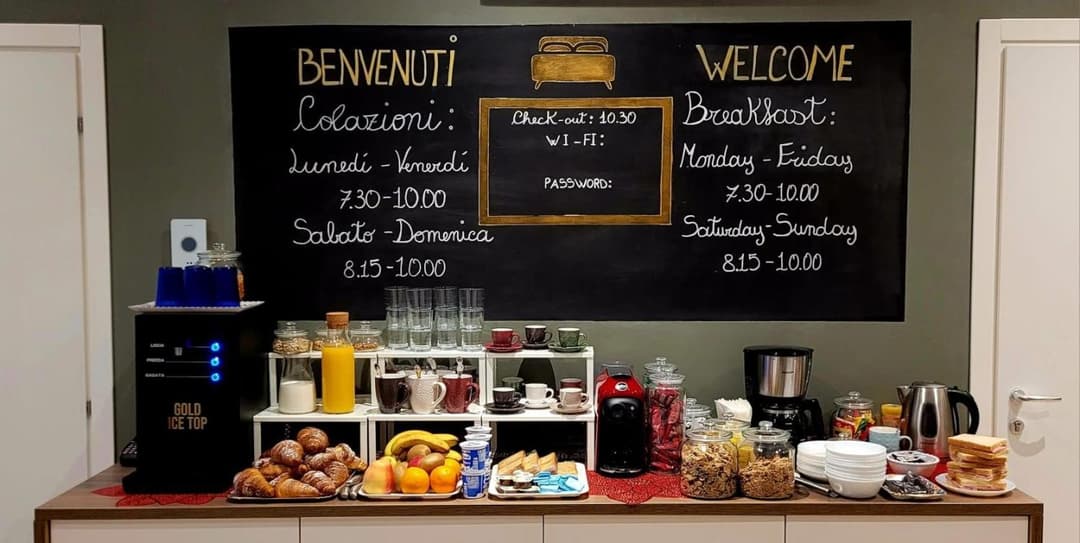 BENVENUTI
Colazioni:
Lunedí - Venerdí
7.30-10.00
Sabato - Domenica
8.15-10.00
Check-out: 10.30
WI-FI:
PASSWORD:
WELCOME
Breakfast:
Monday - Friday
7.30-10.00
Saturday-Sunday
8.15-10.00
LISCIA
FREDDA
GASATA
GOLD
ICE TOP